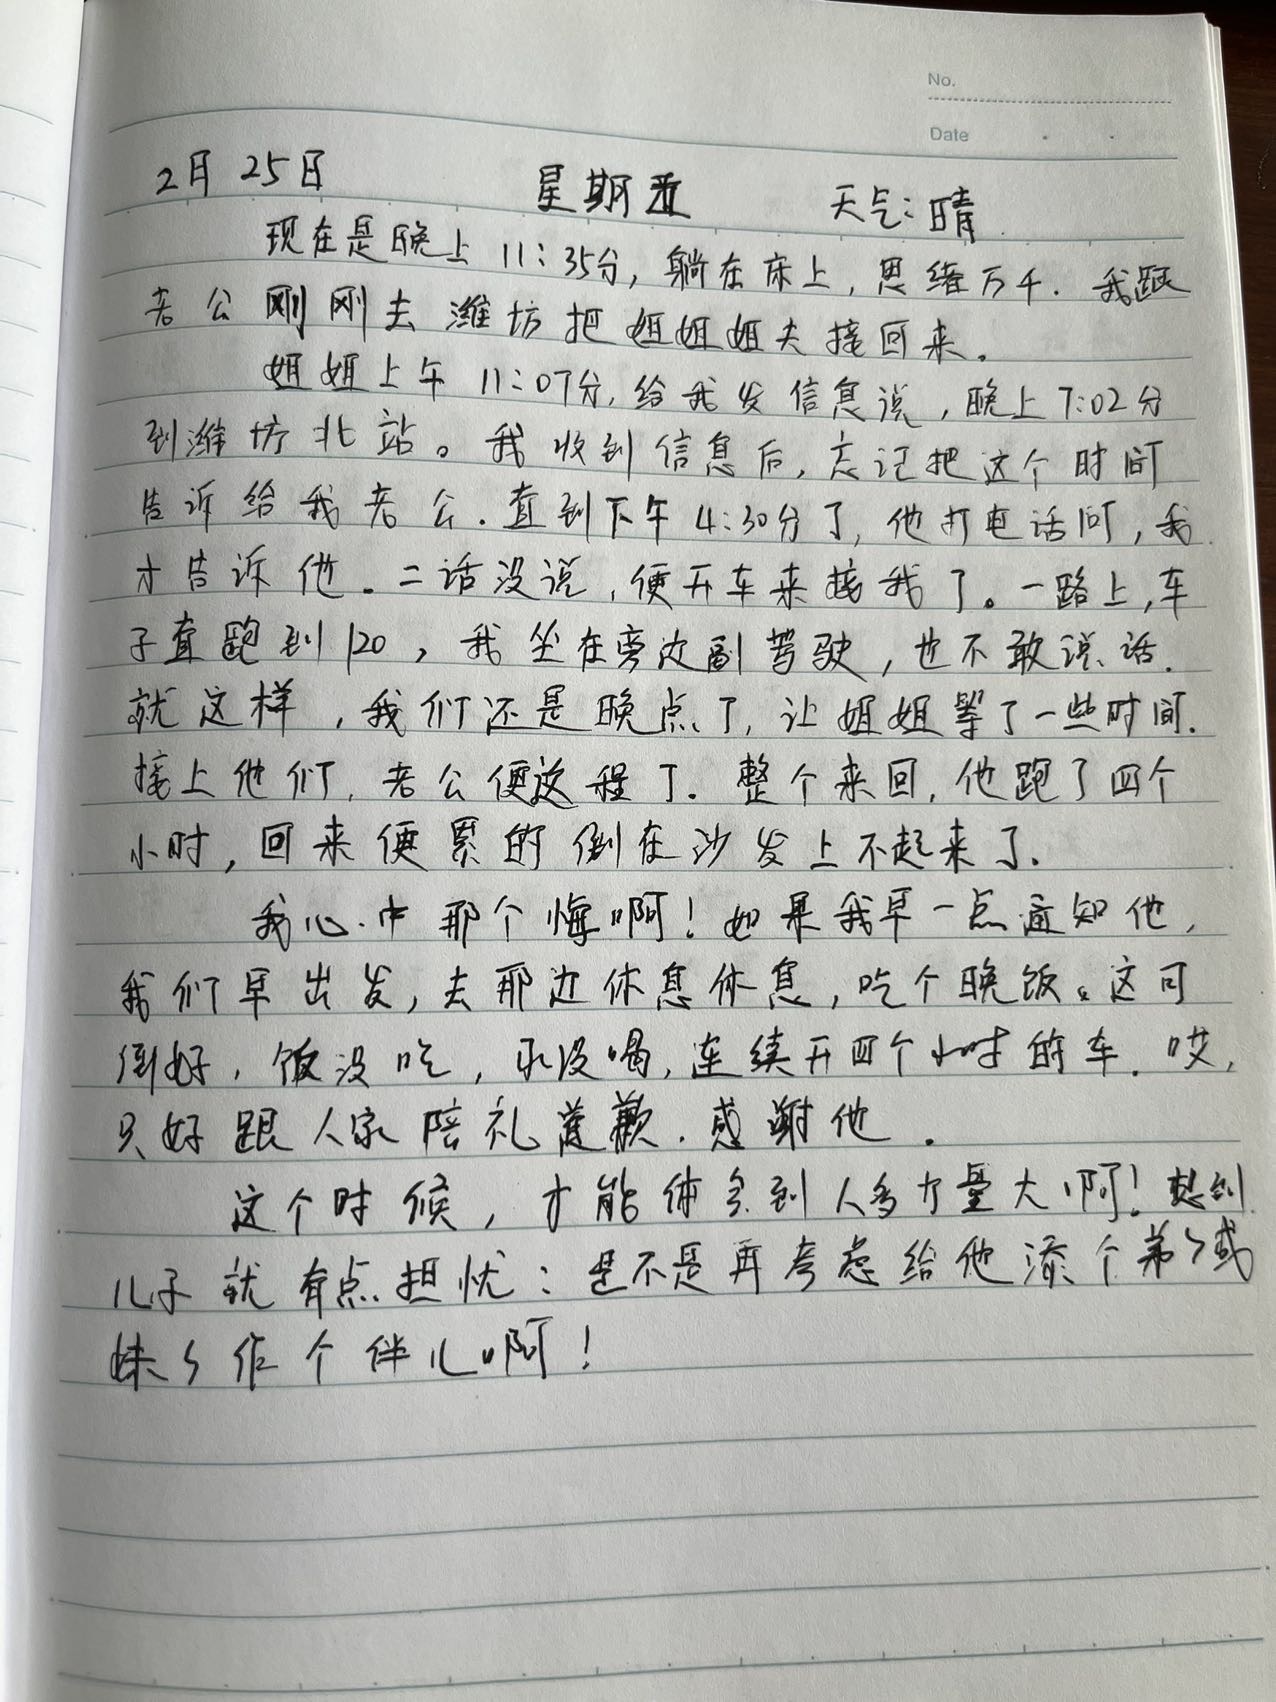 No.
Date
2月25日 星期五 天气:晴
现在是晚上11:35分,躺在床上,思绪万千.我跟
老公刚刚去潍坊把姐姐姐夫接回来。
姐姐上午11:07分,给我发信息说,晚上7:02分
到潍坊北站。我收到信息后,忘记把这个时间
告诉给我老公.直到下午4:30分了,他打电话问,我
才告诉他。二话没说,便开车来接我了。一路上,车
子直跑到120,我坐在旁边副驾驶,也不敢说话.
就这样,我们还是晚点了,让姐姐等了一些时间.
接上他们,老公便返程了.整个来回,他跑了四个
小时,回来便累的倒在沙发上不起来了.
我心中那个悔啊!如果我早一点通知他,
我们早出发,去那边休息休息,吃个晚饭。这可
倒好,饭没吃,水没喝,连续开四个小时的车.哎,
只好跟人家陪礼道歉.感谢他.
这个时候,才能体会到人多力量大啊!想到
儿子就有点担忧:是不是再考虑给他添个弟弟或
妹妹作个伴儿啊!